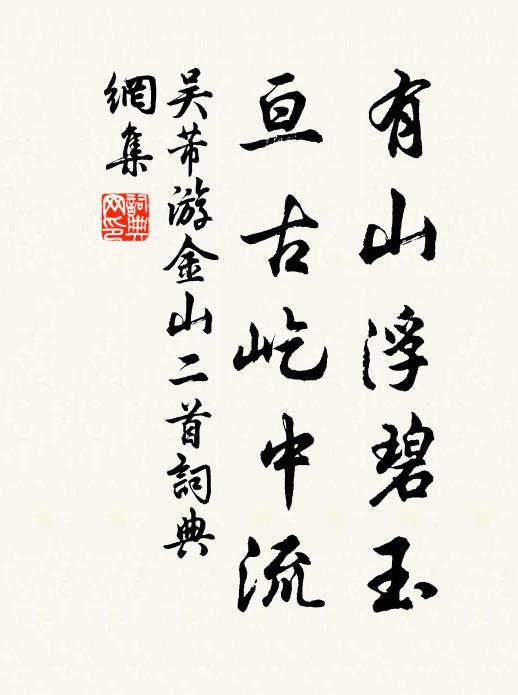 有山浮碧玉
亘古屹中流
吴芾游金山二首詞典
網集
詞典网印